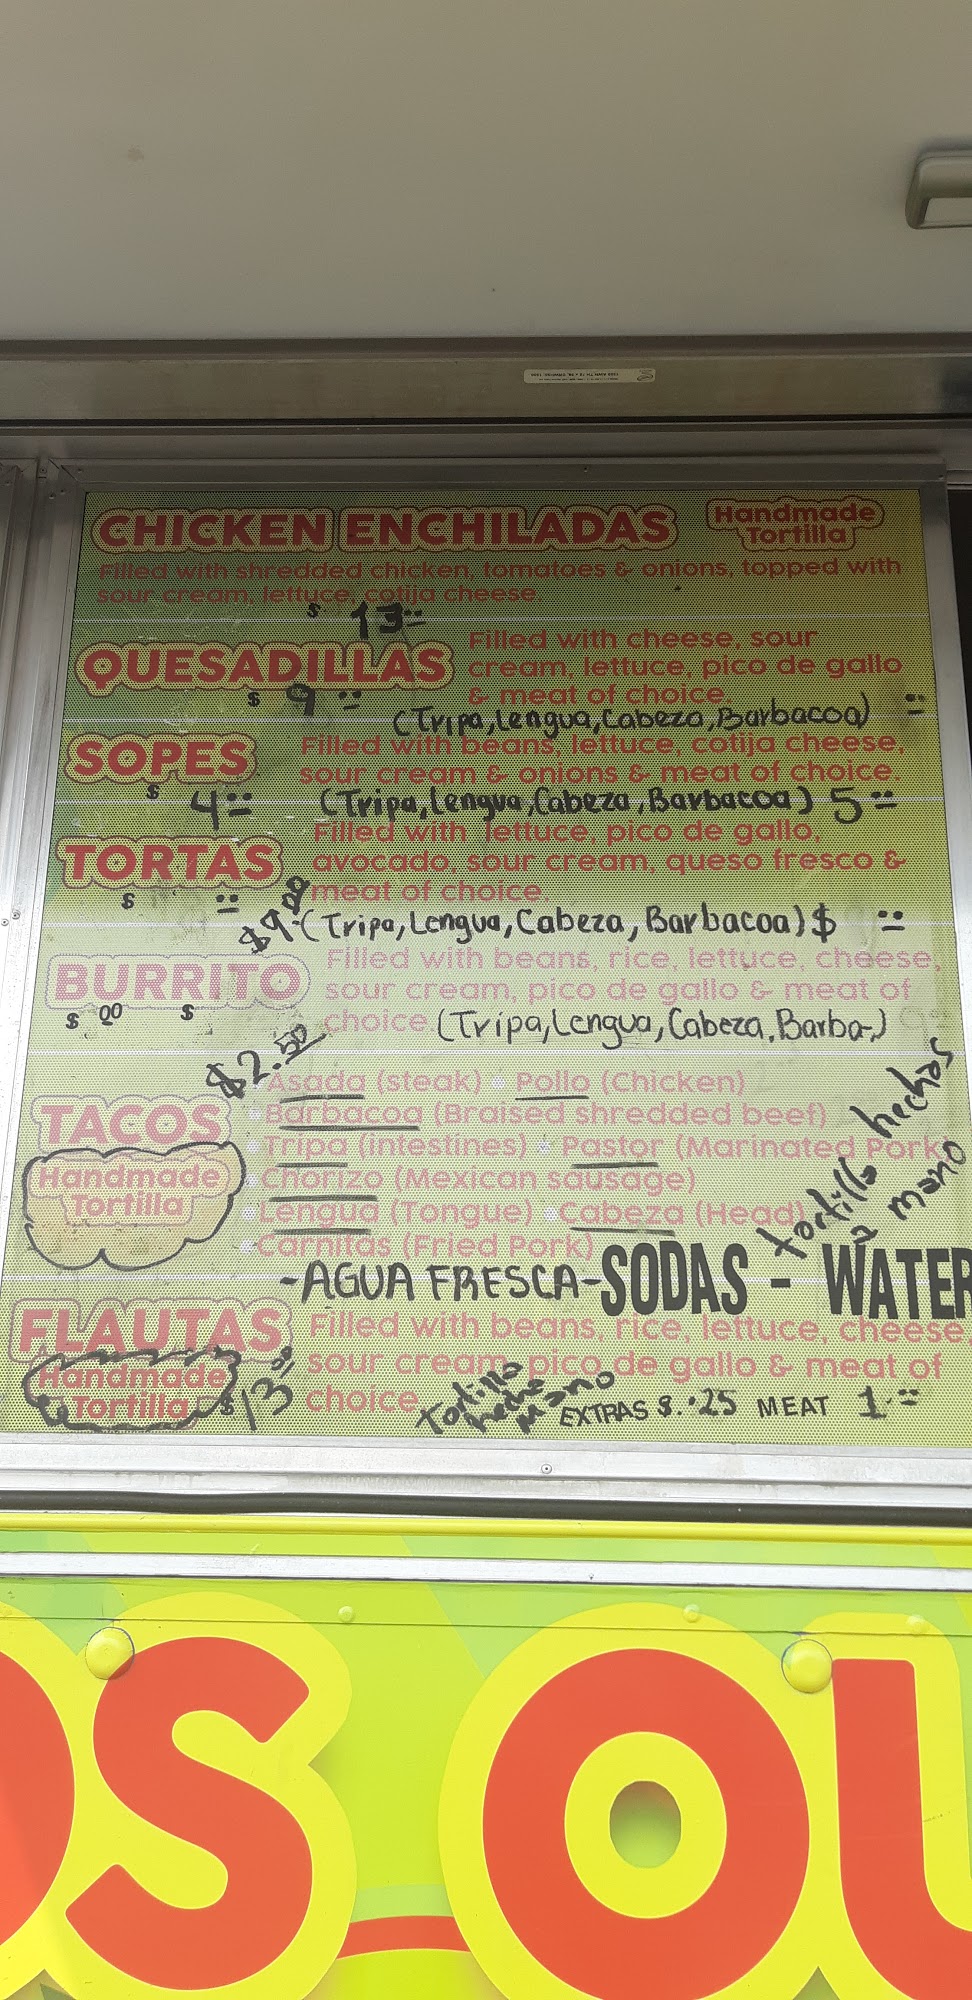 CHICKEN ENCHILADAS
Handmade
Tortilla
Filled with shredded chicken, tomatoes & onions, topped with
sour cream, lettuce, cotija cheese.
$ 13
QUESADILLAS
Filled with cheese, sour
cream, lettuce, pico de gallo
& meat of choice
$ 9
(Tripa, Lengua, Cabeza, Barbacoa)
SOPES
Filled with beans, lettuce, cotija cheese,
sour cream & onions & meat of choice.
$ 4
(Tripa, Lengua, Cabeza, Barbacoa) 5
TORTAS
Filled with lettuce, pico de gallo,
avocado, sour cream, queso fresco &
meat of choice.
$
$9.00
(Tripa, Lengua, Cabeza, Barbacoa) $
BURRITO
Filled with beans, rice, lettuce, cheese,
sour cream, pico de gallo & meat of
choice. (Tripa, Lengua, Cabeza, Barba-)
$ 00 $
TACOS
$2.50
Handmade
Tortilla
Asada (steak) • Pollo (Chicken)
• Barbacoa (Braised shredded beef)
• Tripa (intestines) • Pastor (Marinated Pork
• Chorizo (Mexican sausage)
• Lengua (Tongue) • Cabeza (Head)
• Carnitas (Fried Pork)
tortilla hechas
a mano
-AGUA FRESCA-SODAS - WATER
FLAUTAS
Handmade
Tortilla
$13.00
Filled with beans, rice, lettuce, cheese
sour cream, pico de gallo & meat of
choice
tortilla
hecha
mano
EXTRAS $.25 MEAT 1
OS OU